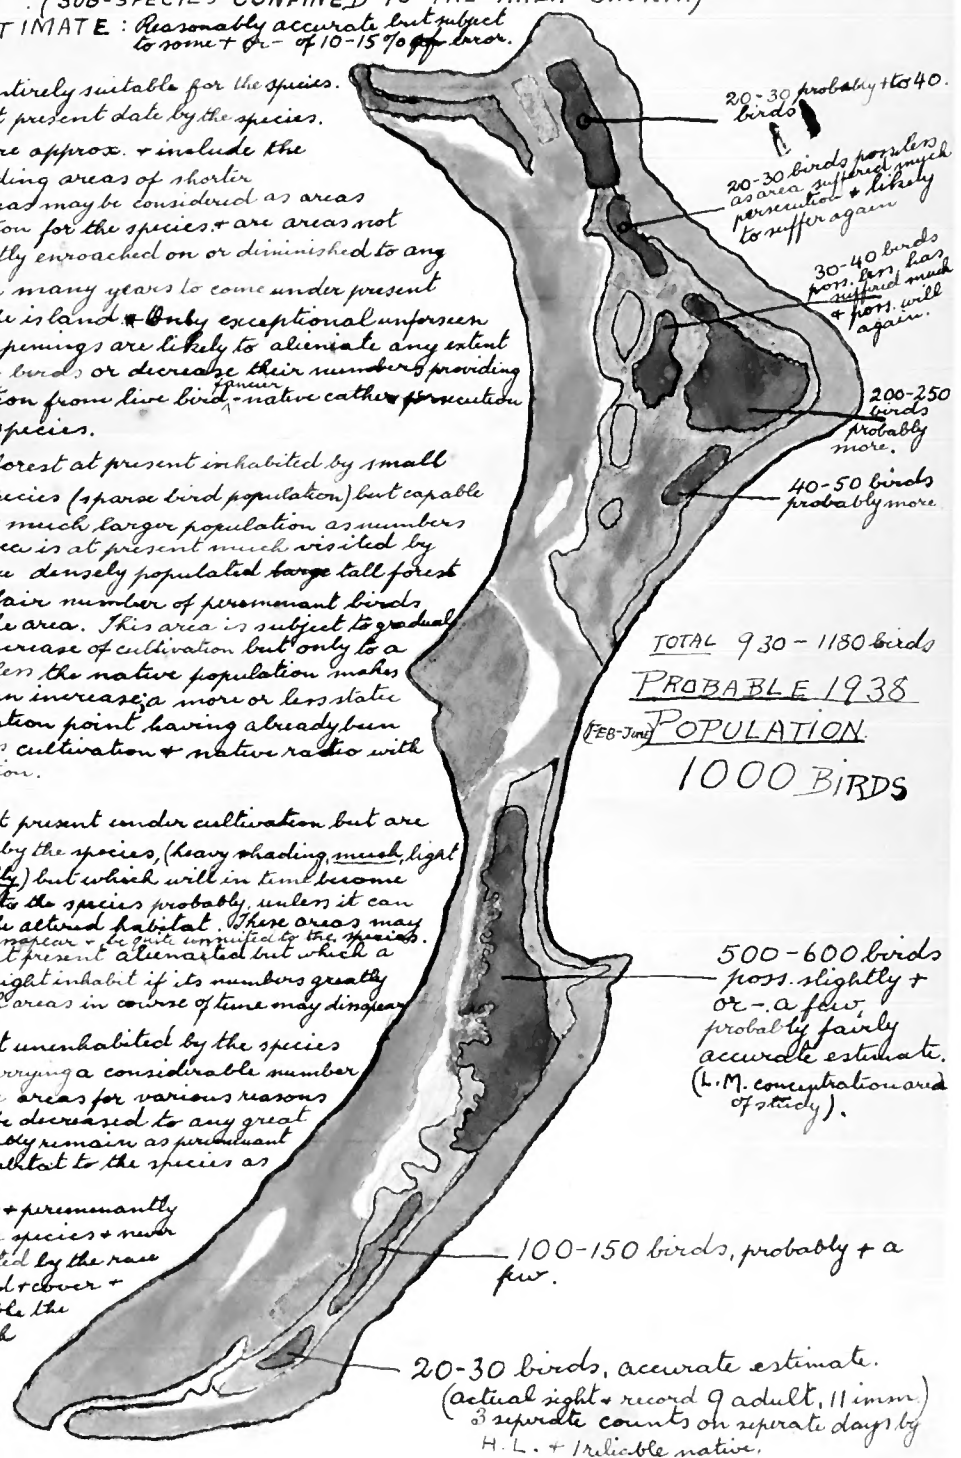 (SUB-SPECIES CONFINED TO THE AREA SHOWN)
TIMATE: Reasonably accurate but subject
to some + or - of 10-15% of error.
ntirely suitable for the species.
t present date by the species.
re approx. + include the
ding areas of shorter
eas may be considered as areas
ion for the species, + are areas not
tly enroached on or diminished to any
many years to come under present
e island & Only exceptional unforseen
penings are likely to alienate any extent
birds or decrease their numbers providing
ion from live bird fancier - native cather persecution
species.
forest at present inhabited by small
pecies (sparse bird population) but capable
much larger population as numbers
rea is at present much visited by
e densely populated large tall forest
fair number of peremenant birds
le area. This area is subject to gradual
crease of cultivation but only to a
less the native population makes
n increase; a more or less static
ation point having already been
s cultivation + native radio with
ion.
t present under cultivation but are
by the species, (heavy shading, much, light
ly) but which will in time become
to the species probably, unless it can
e altered habitat. These areas may
disapear + be quite unsuited to the species.
t present alienated but which a
ight inhabit if its numbers greatly
areas in course of time may disapear
t uninhabited by the species
rrying a considerable number
areas for various reasons
be decreased to any great
bly remain as peremenant
abitat to the species as
+ peremenantly
species + never
ted by the race
d + cover +
ble the
20-30 probably + to 40.
birds
20-30 birds poss. less
as area suffered much
persecution + likely
to suffer again
30-40 birds
poss. less, has
suffered much
+ poss. will
again.
200-250
birds
probably
more.
40-50 birds
probably more
TOTAL 930-1180 birds
PROBABLE 1938
(FEB-June) POPULATION.
1000 BIRDS
500-600 birds
poss. slightly +
or - a few,
probably fairly
accurate estimate.
(L.M. concentration area
of study).
100-150 birds, probably + a
few.
20-30 birds, accurate estimate.
(actual sight + record 9 adult, 11 imm.)
3 seperate counts on seperate days by
H.L. + 1 reliable native.